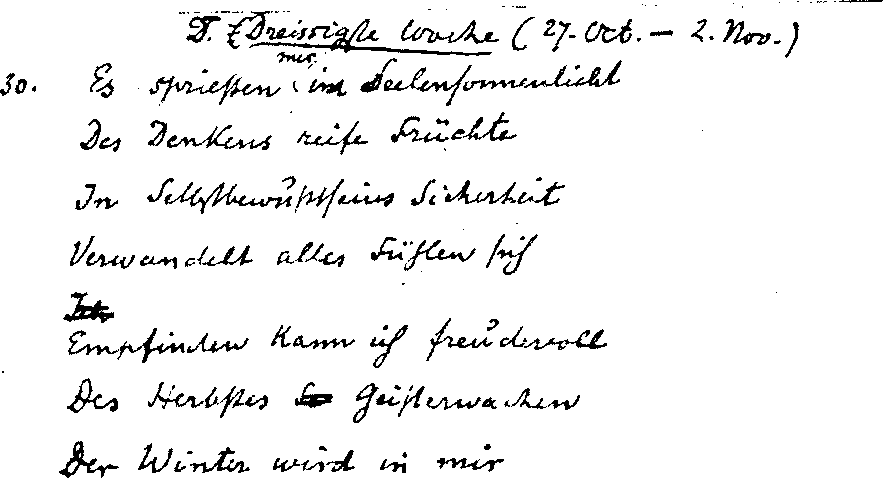 D. Z Dreissigste Woche (27. Oct. – 2. Nov.)
30. Es sprießen mir im Seelensonnenlicht
Des Denkens reife Früchte
In Selbstbewußtseins Sicherheit
Verwandelt alles Fühlen sich
Empfinden kann ich freudevoll
Des Herbstes Geisterwachen
Der Winter wird in mir